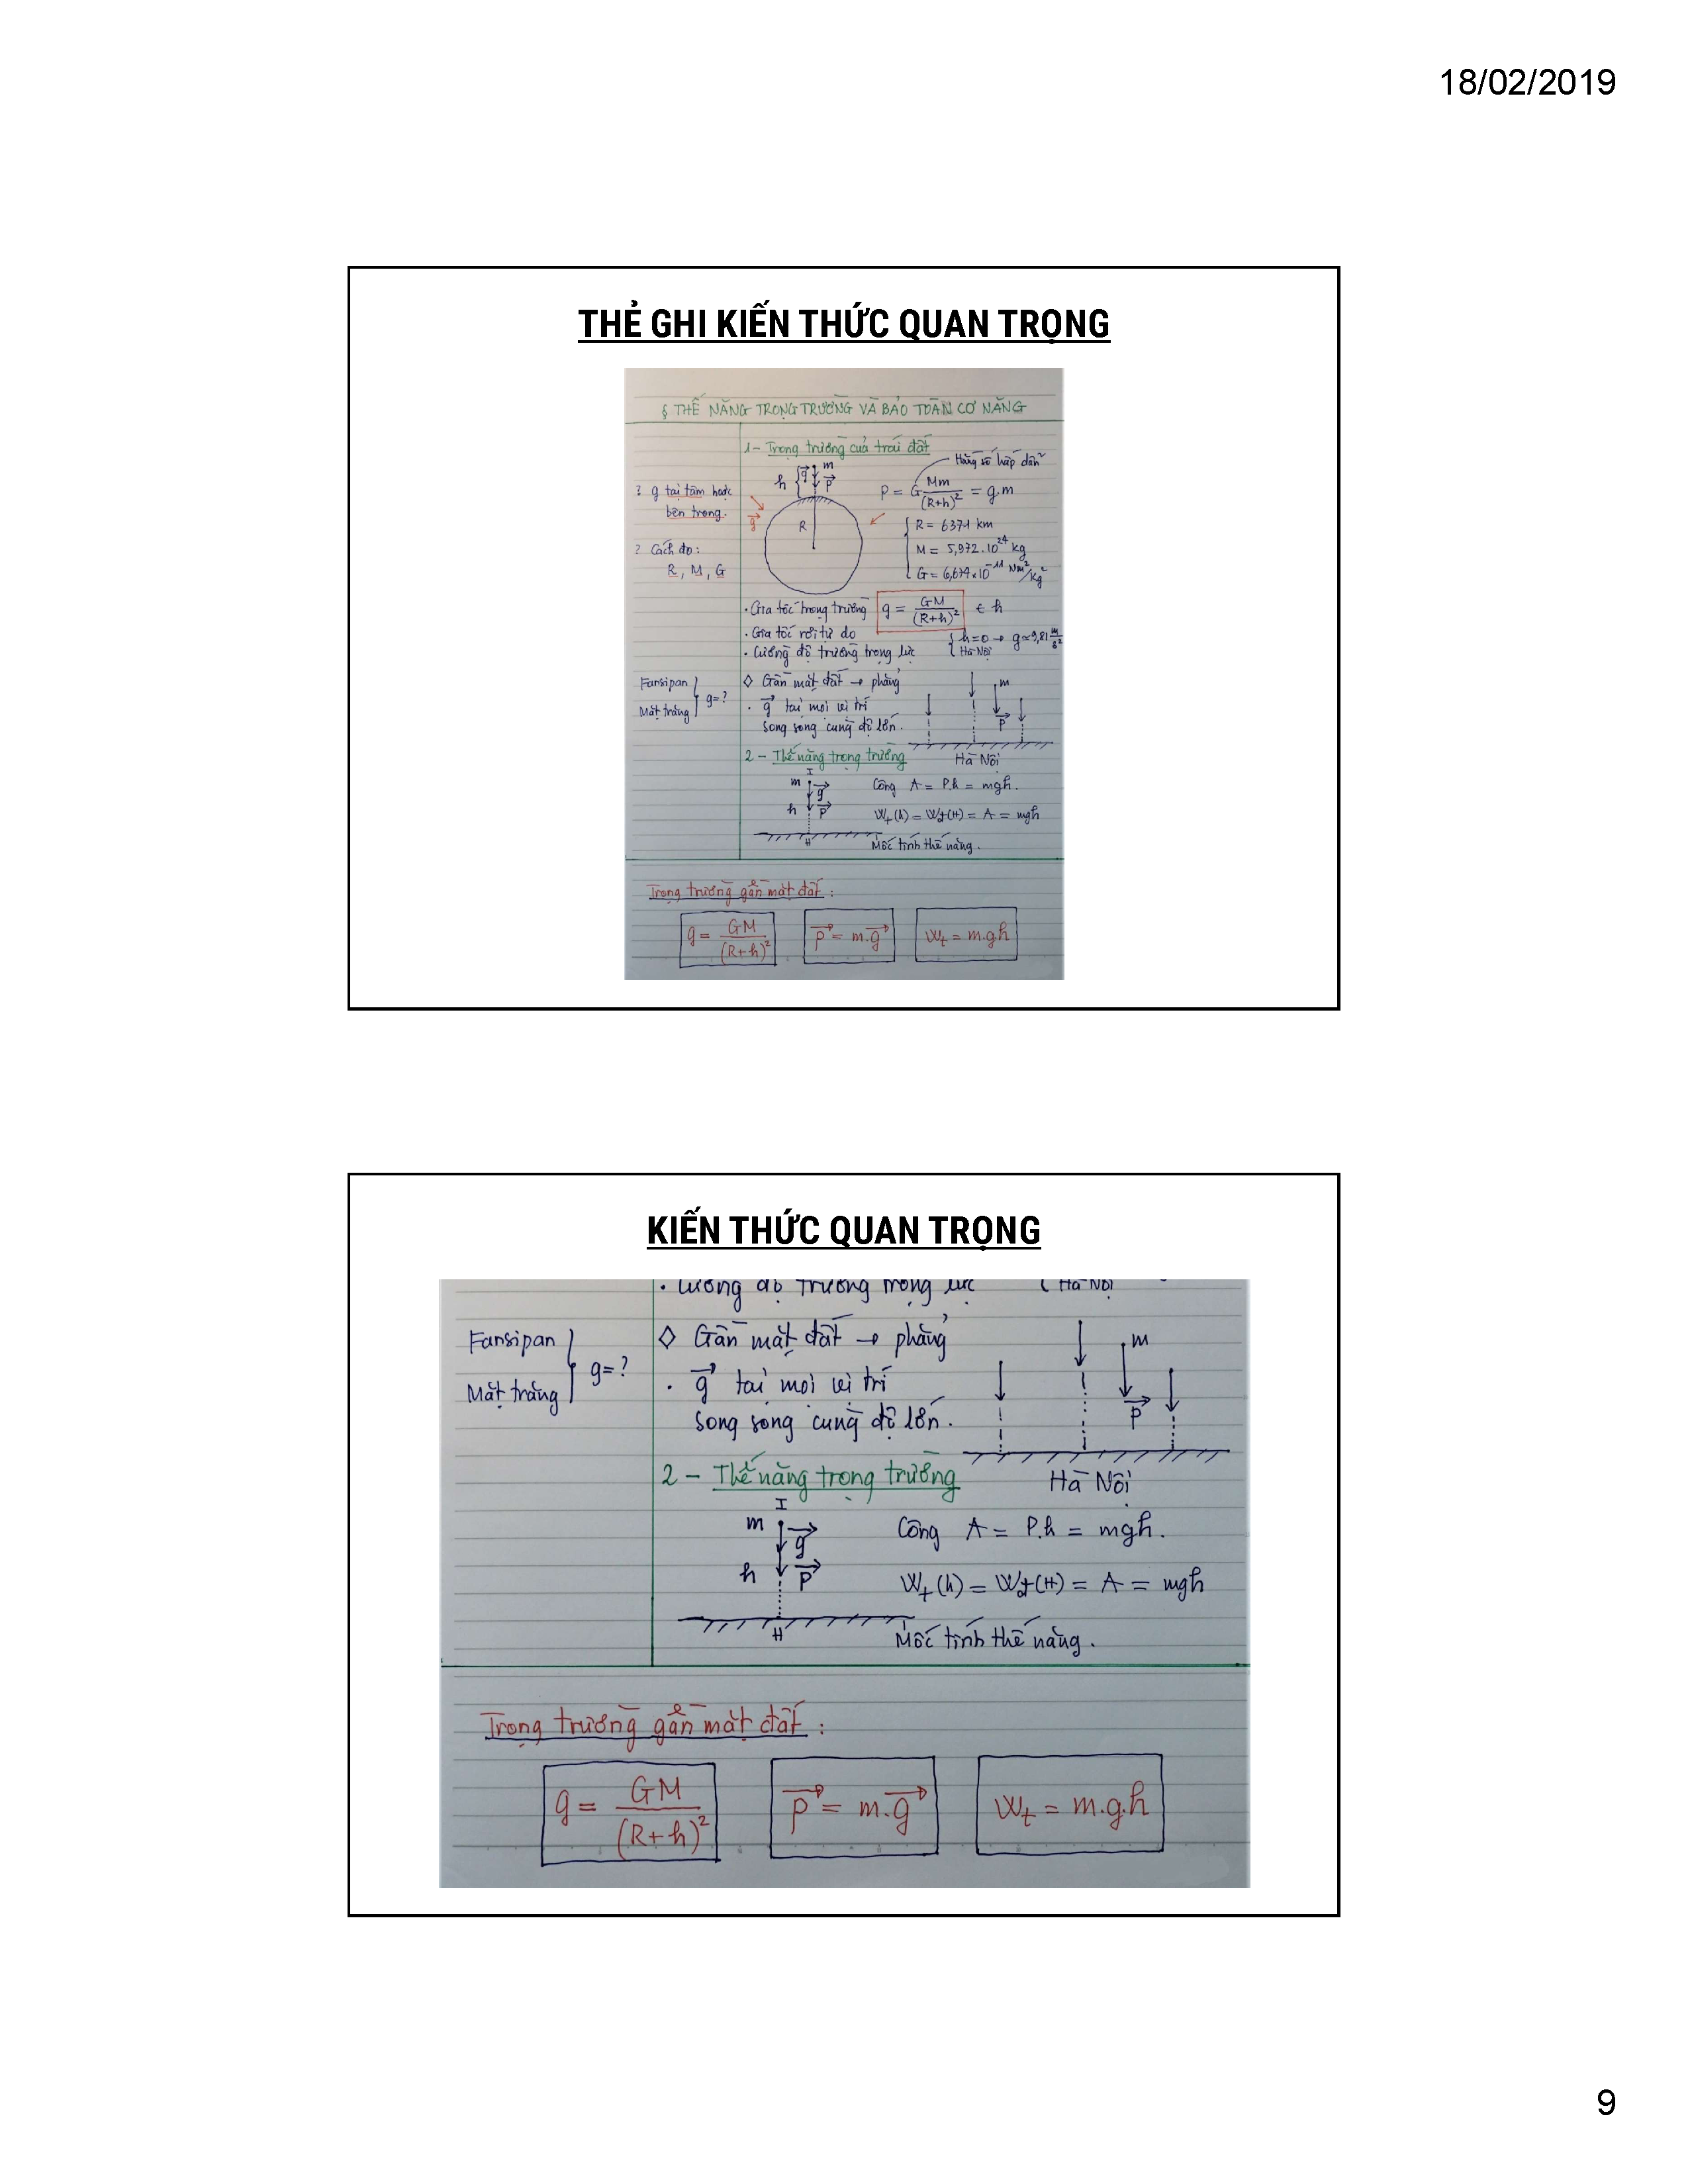 18/02/2019
THẺ GHI KIẾN THỨC QUAN TRỌNG
§ THẾ NĂNG TRỌNG TRƯỜNG VÀ BẢO TOÀN CƠ NĂNG
1- Trọng trường của trái đất
Hằng số hấp dẫn
h { g m P
P = G Mm/(R+h)² = g.m
? g tại tâm hoặc
bên trong.
g R
R = 6371 km
? Cách đo:
M = 5,972.10²⁴ kg
R, M, G
G = 6,674×10⁻¹¹ Nm²/kg²
• Gia tốc trọng trường g = GM/(R+h)² ∈ h
• Gia tốc rơi tự do { h=0 → g≈9,81 m/s²
• Cường độ trường trọng lực { Hà Nội
Fansipan
Mặt trăng } g=?
◊ Gần mặt đất → phẳng
m
• g⃗ tại mọi vị trí
P⃗
song song cùng độ lớn.
2 - Thế năng trọng trường
Hà Nội
I
m g⃗
Công A = P.h = mgh.
h P⃗
Wt(h) = Wt(H) = A = mgh
H
Mốc tính thế năng.
Trọng trường gần mặt đất :
g = GM/(R+h)² P⃗ = m.g⃗ Wt = m.g.h
KIẾN THỨC QUAN TRỌNG
• Cường độ trường trọng lực { Hà Nội
Fansipan
Mặt trăng } g=?
◊ Gần mặt đất → phẳng
m
• g⃗ tại mọi vị trí
P⃗
song song cùng độ lớn.
2 - Thế năng trọng trường
Hà Nội
I
m g⃗
Công A = P.h = mgh.
h P⃗
Wt(h) = Wt(H) = A = mgh
H
Mốc tính thế năng.
Trọng trường gần mặt đất :
g = GM/(R+h)² P⃗ = m.g⃗ Wt = m.g.h
9